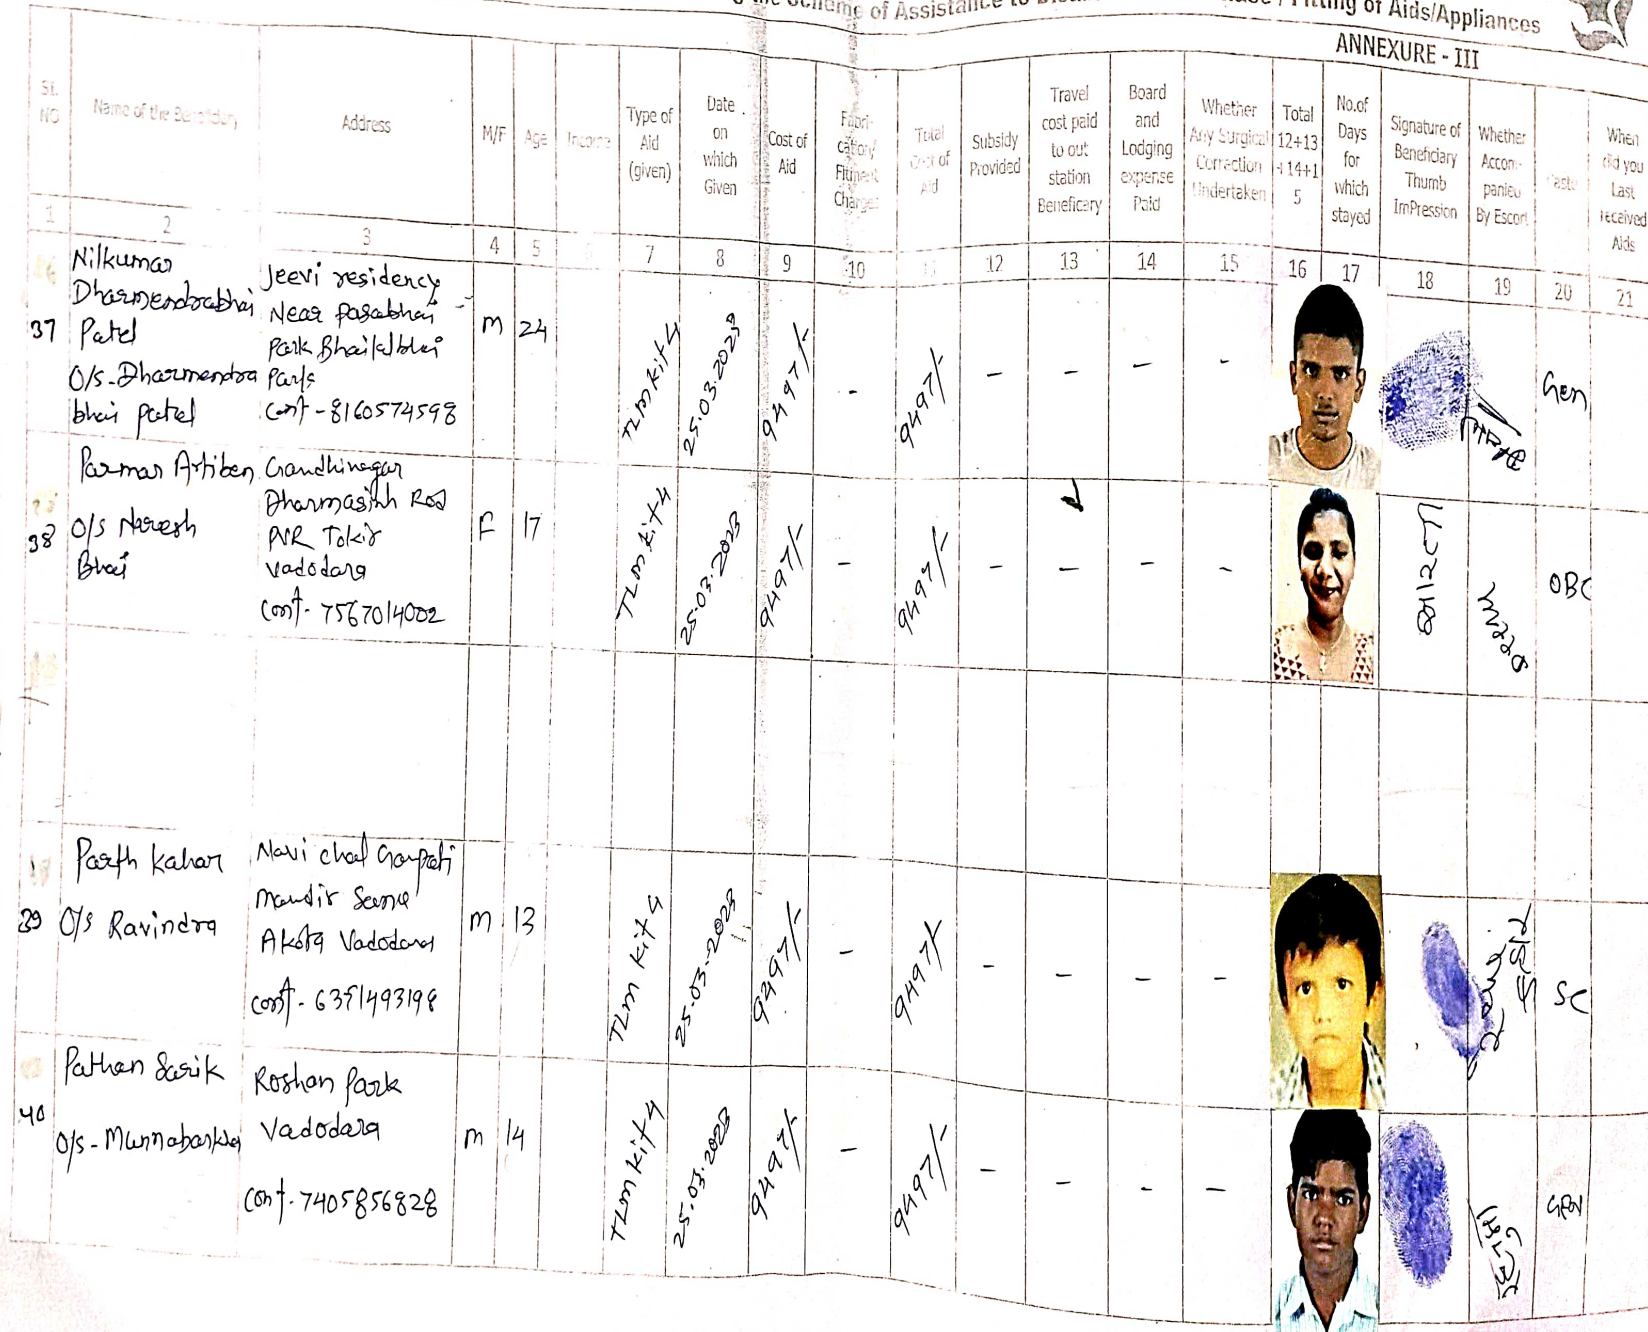 the Scheme of Assistance to / Fitting of Aids/Appliances
ANNEXURE - III
Sl. NO
Name of the Beneficiary
Address
M/F
Age
Income
Type of Aid (given)
Date on which Given
Cost of Aid
Fabri- cation/ Fitment Charges
Total Cost of Aid
Subsidy Provided
Travel cost paid to out station Beneficary
Board and Lodging expense Paid
Whether Any Surgical Correction Undertaken
Total 12+13 +14+1 5
No.of Days for which stayed
Signature of Beneficiary Thumb ImPression
Whether Accom- panied By Escort
Caste
When did you Last received Aids
1 2 3 4 5 7 8 9 10 11 12 13 14 15 16 17 18 19 20 21
37
Nilkumar
Dharmendrabhai
Patel
O/s-Dharmendra
bhai patel
Jeevi residency
Near parabhai
Park Bhailalbhai
Park
Cont - 8160574598
M 24 TLM kit 4 25.03.2023 9497/- - 9497/- - - - - Gen
38
Parmar Artiben
O/s Naresh
Bhai
Gandhinagar
Dharmasinh Rod
PVR Tokir
Vadodara
Cont- 7567014002
F 17 TLM kit 4 25.03.2023 9497/- - 9497/- - - - - આરતી નરેશ OBC
39
Parth Kahar
O/s Ravindra
Navi chal Ganpati
Mandir
Akota Vadodara
Cont- 6351493198
M 13 TLM kit 4 25.03.2023 9497/- - 9497/- - - - - SC
40
Pathan Sarik
O/s-
Roshan Park
Vadodara
Cont- 7405856828
M 14 TLM kit 4 25.03.2023 9497/- - 9497/- - - - - GEN